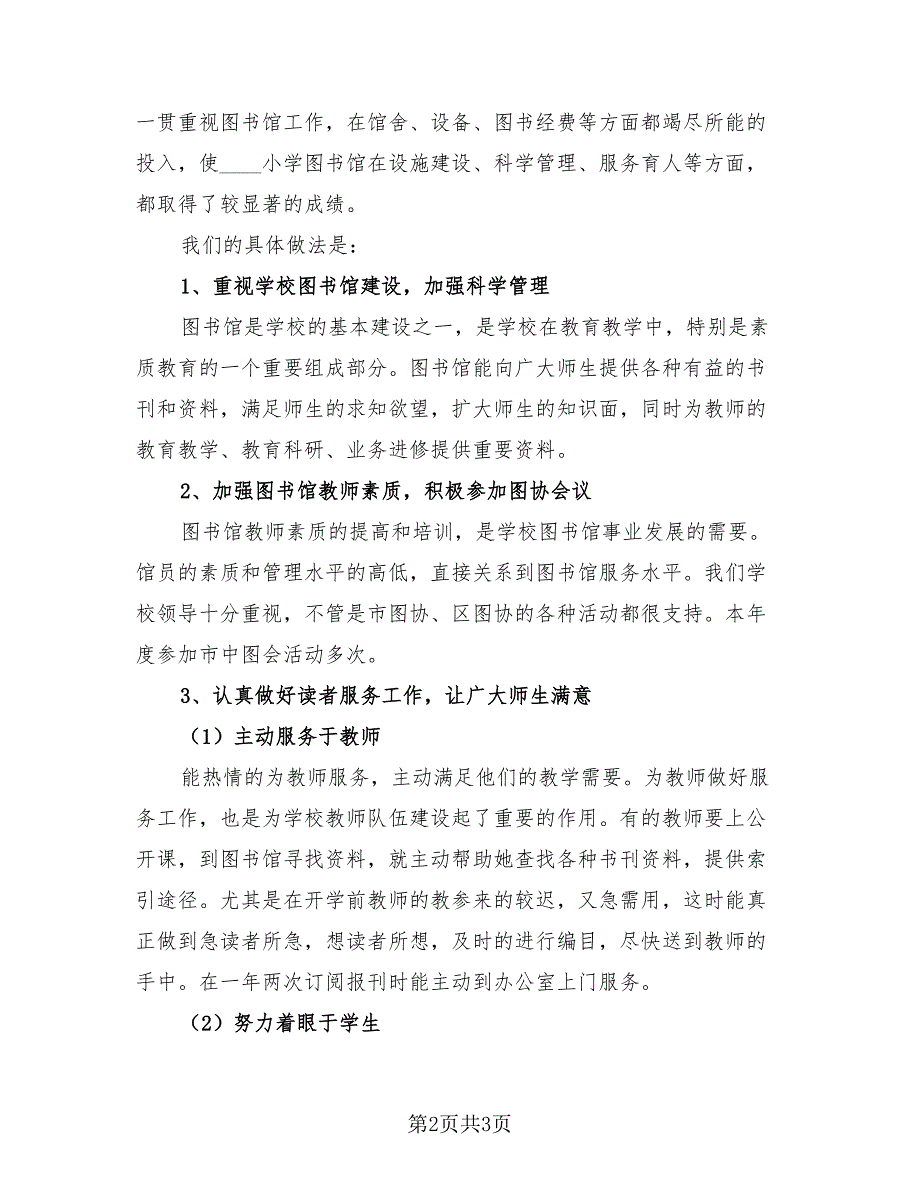 一贯重视图书馆工作，在馆舍、设备、图书经费等方面都竭尽所能的
投入，使____小学图书馆在设施建设、科学管理、服务育人等方面，
都取得了较显著的成绩。
我们的具体做法是：
1、重视学校图书馆建设，加强科学管理
图书馆是学校的基本建设之一，是学校在教育教学中，特别是素
质教育的一个重要组成部分。图书馆能向广大师生提供各种有益的书
刊和资料，满足师生的求知欲望，扩大师生的知识面，同时为教师的
教育教学、教育科研、业务进修提供重要资料。
2、加强图书馆教师素质，积极参加图协会议
图书馆教师素质的提高和培训，是学校图书馆事业发展的需要。
馆员的素质和管理水平的高低，直接关系到图书馆服务水平。我们学
校领导十分重视，不管是市图协、区图协的各种活动都很支持。本年
度参加市中图会活动多次。
3、认真做好读者服务工作，让广大师生满意
（1）主动服务于教师
能热情的为教师服务，主动满足他们的教学需要。为教师做好服
务工作，也是为学校教师队伍建设起了重要的作用。有的教师要上公
开课，到图书馆寻找资料，就主动帮助她查找各种书刊资料，提供索
引途径。尤其是在开学前教师的教参来的较迟，又急需用，这时能真
正做到急读者所急，想读者所想，及时的进行编目，尽快送到教师的
手中。在一年两次订阅报刊时能主动到办公室上门服务。
（2）努力着眼于学生
第2页共3页